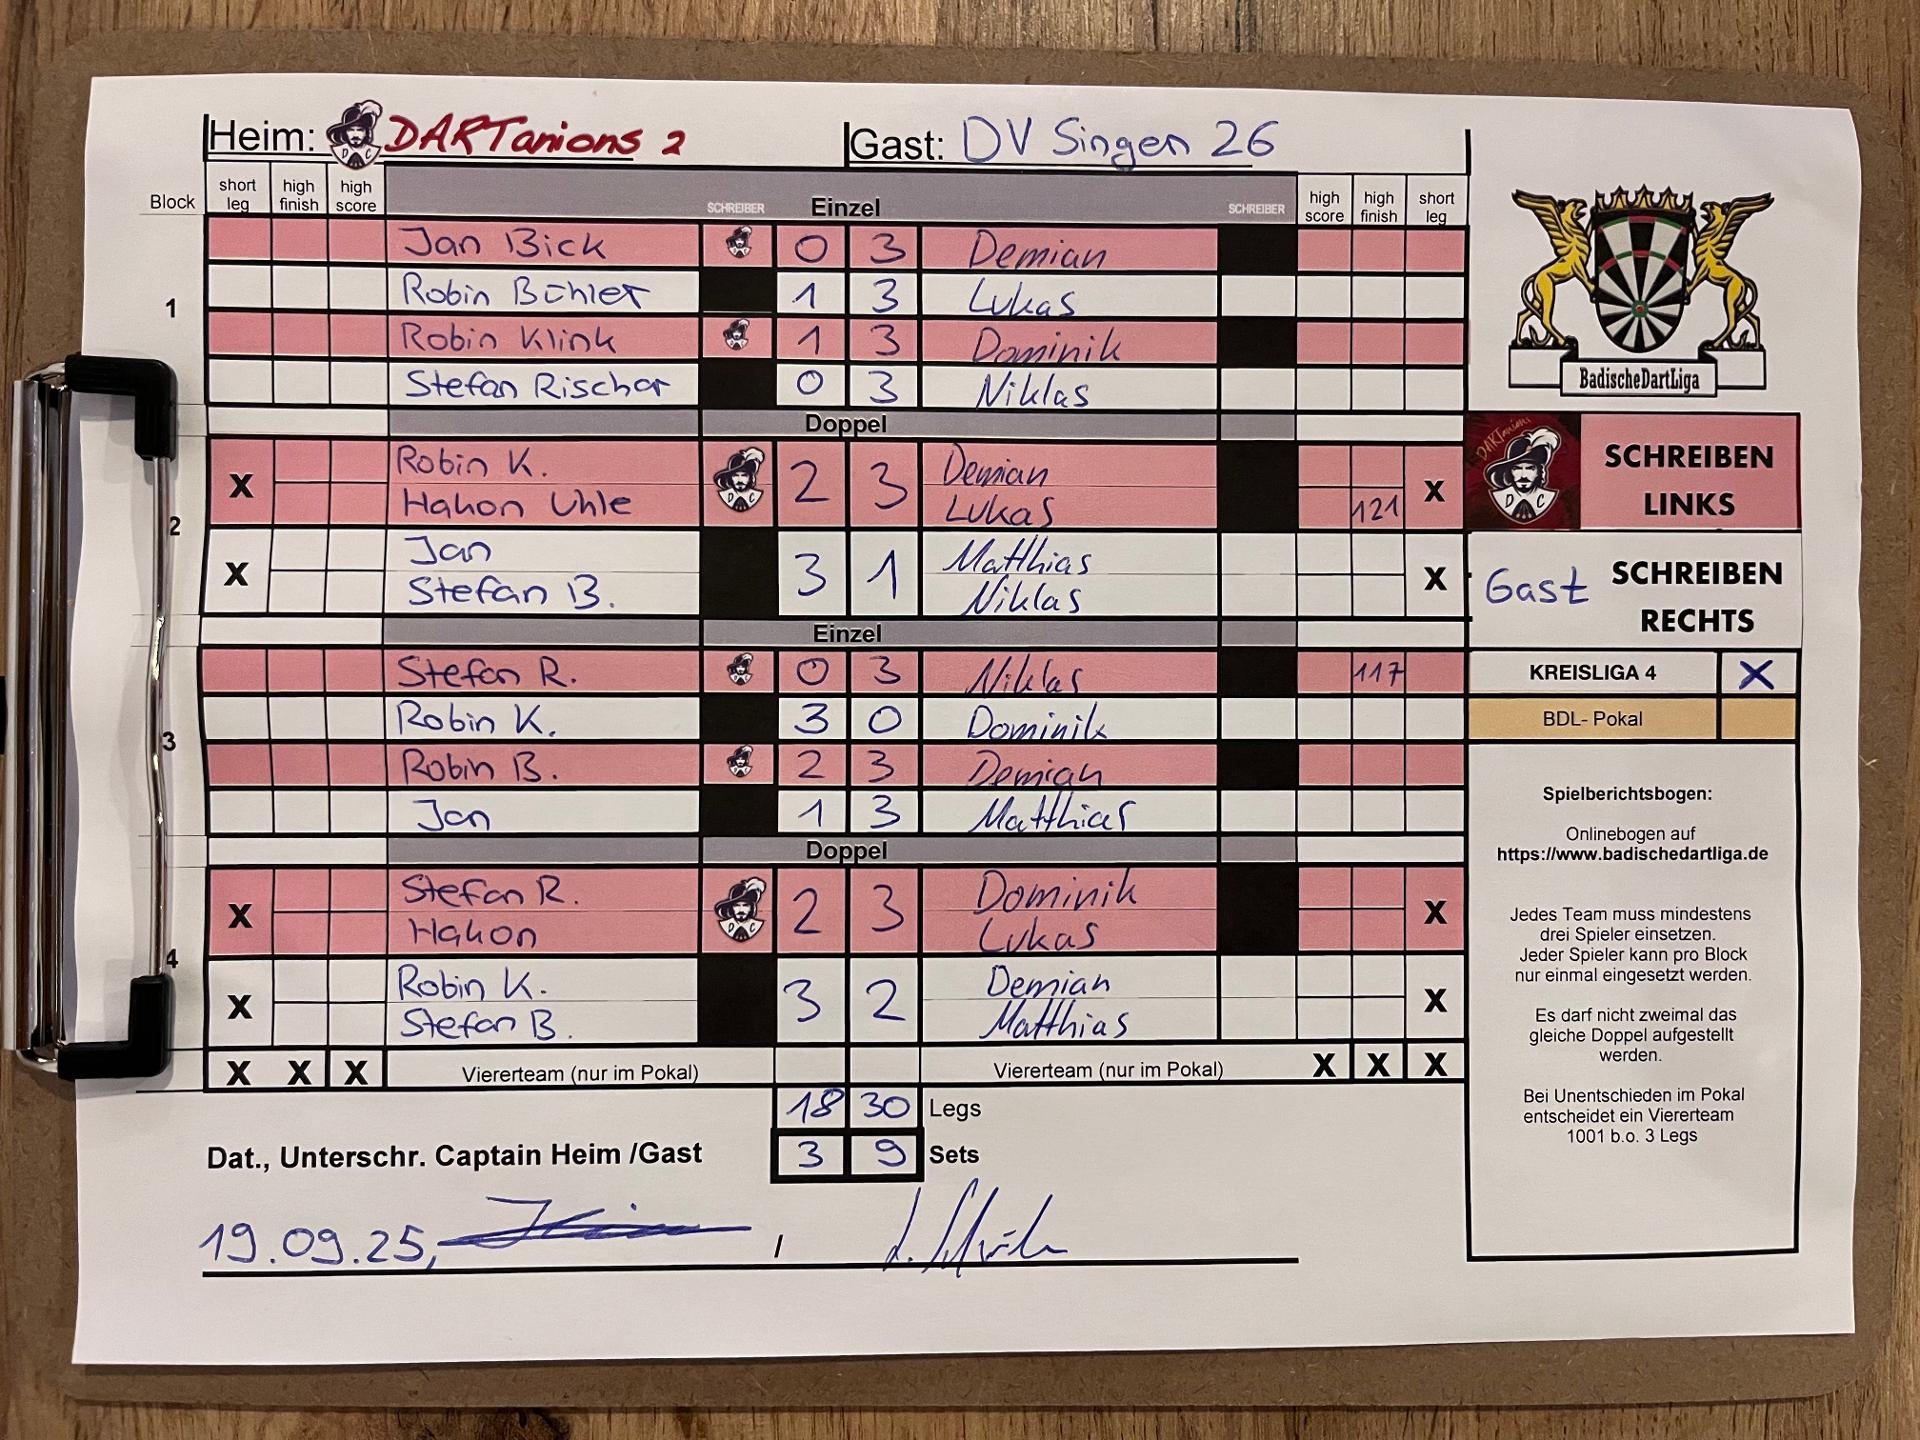 Heim: DARTanions 2 Gast: DV Singen 26
Block short leg high finish high score SCHREIBER Einzel SCHREIBER high score high finish short leg
Jan Bick 0 3 Demian
1
Robin Bühler 1 3 Lukas
Robin Klink 1 3 Dominik
Stefan Rischar 0 3 Niklas
BadischeDartLiga
Doppel
2
X Robin K. 2 3 Demian X
Hakon Uhle Lukas 121
DARTanions
D C
SCHREIBEN
LINKS
X Jan 3 1 Matthias X
Stefan B. Niklas
Gast SCHREIBEN
RECHTS
Einzel
3
Stefan R. 0 3 Niklas 117
KREISLIGA 4 X
Robin K. 3 0 Dominik
BDL- Pokal
Robin B. 2 3 Demian
Jan 1 3 Matthias
Doppel
4
X Stefan R. 2 3 Dominik X
Hakon Lukas
X Robin K. 3 2 Demian X
Stefan B. Matthias
X X X Viererteam (nur im Pokal) Viererteam (nur im Pokal) X X X
18 30 Legs
Dat., Unterschr. Captain Heim /Gast 3 9 Sets
19.09.25, /
Spielberichtsbogen:
Onlinebogen auf
https://www.badischedartliga.de
Jedes Team muss mindestens
drei Spieler einsetzen.
Jeder Spieler kann pro Block
nur einmal eingesetzt werden.
Es darf nicht zweimal das
gleiche Doppel aufgestellt
werden.
Bei Unentschieden im Pokal
entscheidet ein Viererteam
1001 b.o. 3 Legs